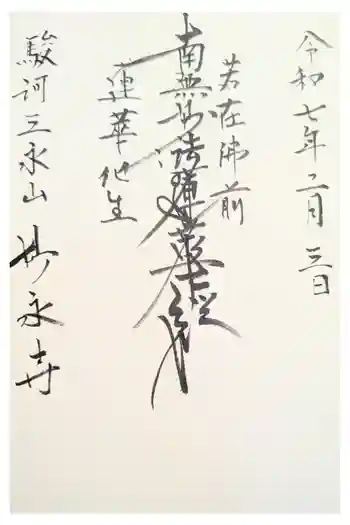 令和七年二月三日
若在佛前
南無妙法蓮華経
蓮華化生
駿河三永山 妙永寺